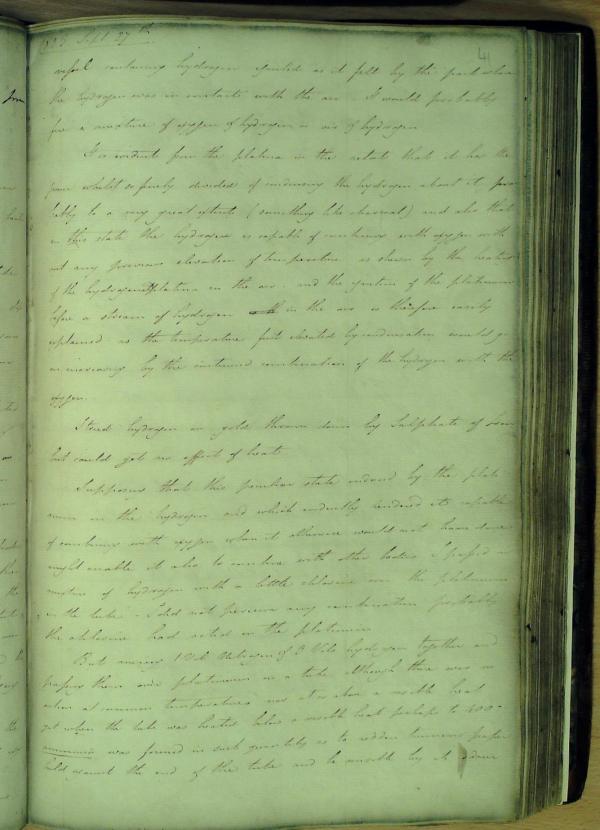 1823 Sept 27th
41
vessel containing hydrogen ignited as it fell by the part where
the hydrogen was in contact with the air. It would probably
fire a mixture of oxygen & hydrogen or air & hydrogen
It is evident from the platina in the retort that it has the
power whilst so finely divided of condensing the hydrogen about it pro
bably to a very great extent (something like charcoal) and also that
in this state the hydrogen is capable of combining with oxygen with
out any previous elevation of temperature as shewn by the heating
of the hydrogenated platina in the air. and the ignition of the platinum
before a stream of hydrogen in the air is therefore easily
explained as the temperature first elevated by condensation would go
on increasing by the continued combination of the hydrogen with the
oxygen.
Tried hydrogen on gold thrown down by Sulphate of Iron
but could get no effect of heat
Supposing that this peculiar state induced by the plati
num on the hydrogen and which evidently rendered it capable
of combining with oxygen when it otherwise would not have done
might enable it also to combine with other bodies I passed a
mixture of hydrogen with a little chlorine over the platinum
in the tube. I did not perceive any combination probably
the chlorine had acted on the platinum
But mixing 1 Vol Nitrogen & 3 Vols hydrogen together and
passing them over platinum in a tube although there was no
action at common temperatures nor at or above a heat
yet when the tube was heated below a heat perhaps to 400°
ammonia was formed in such quantity as to redden turmeric paper
held against the end of the tube and be by its odour